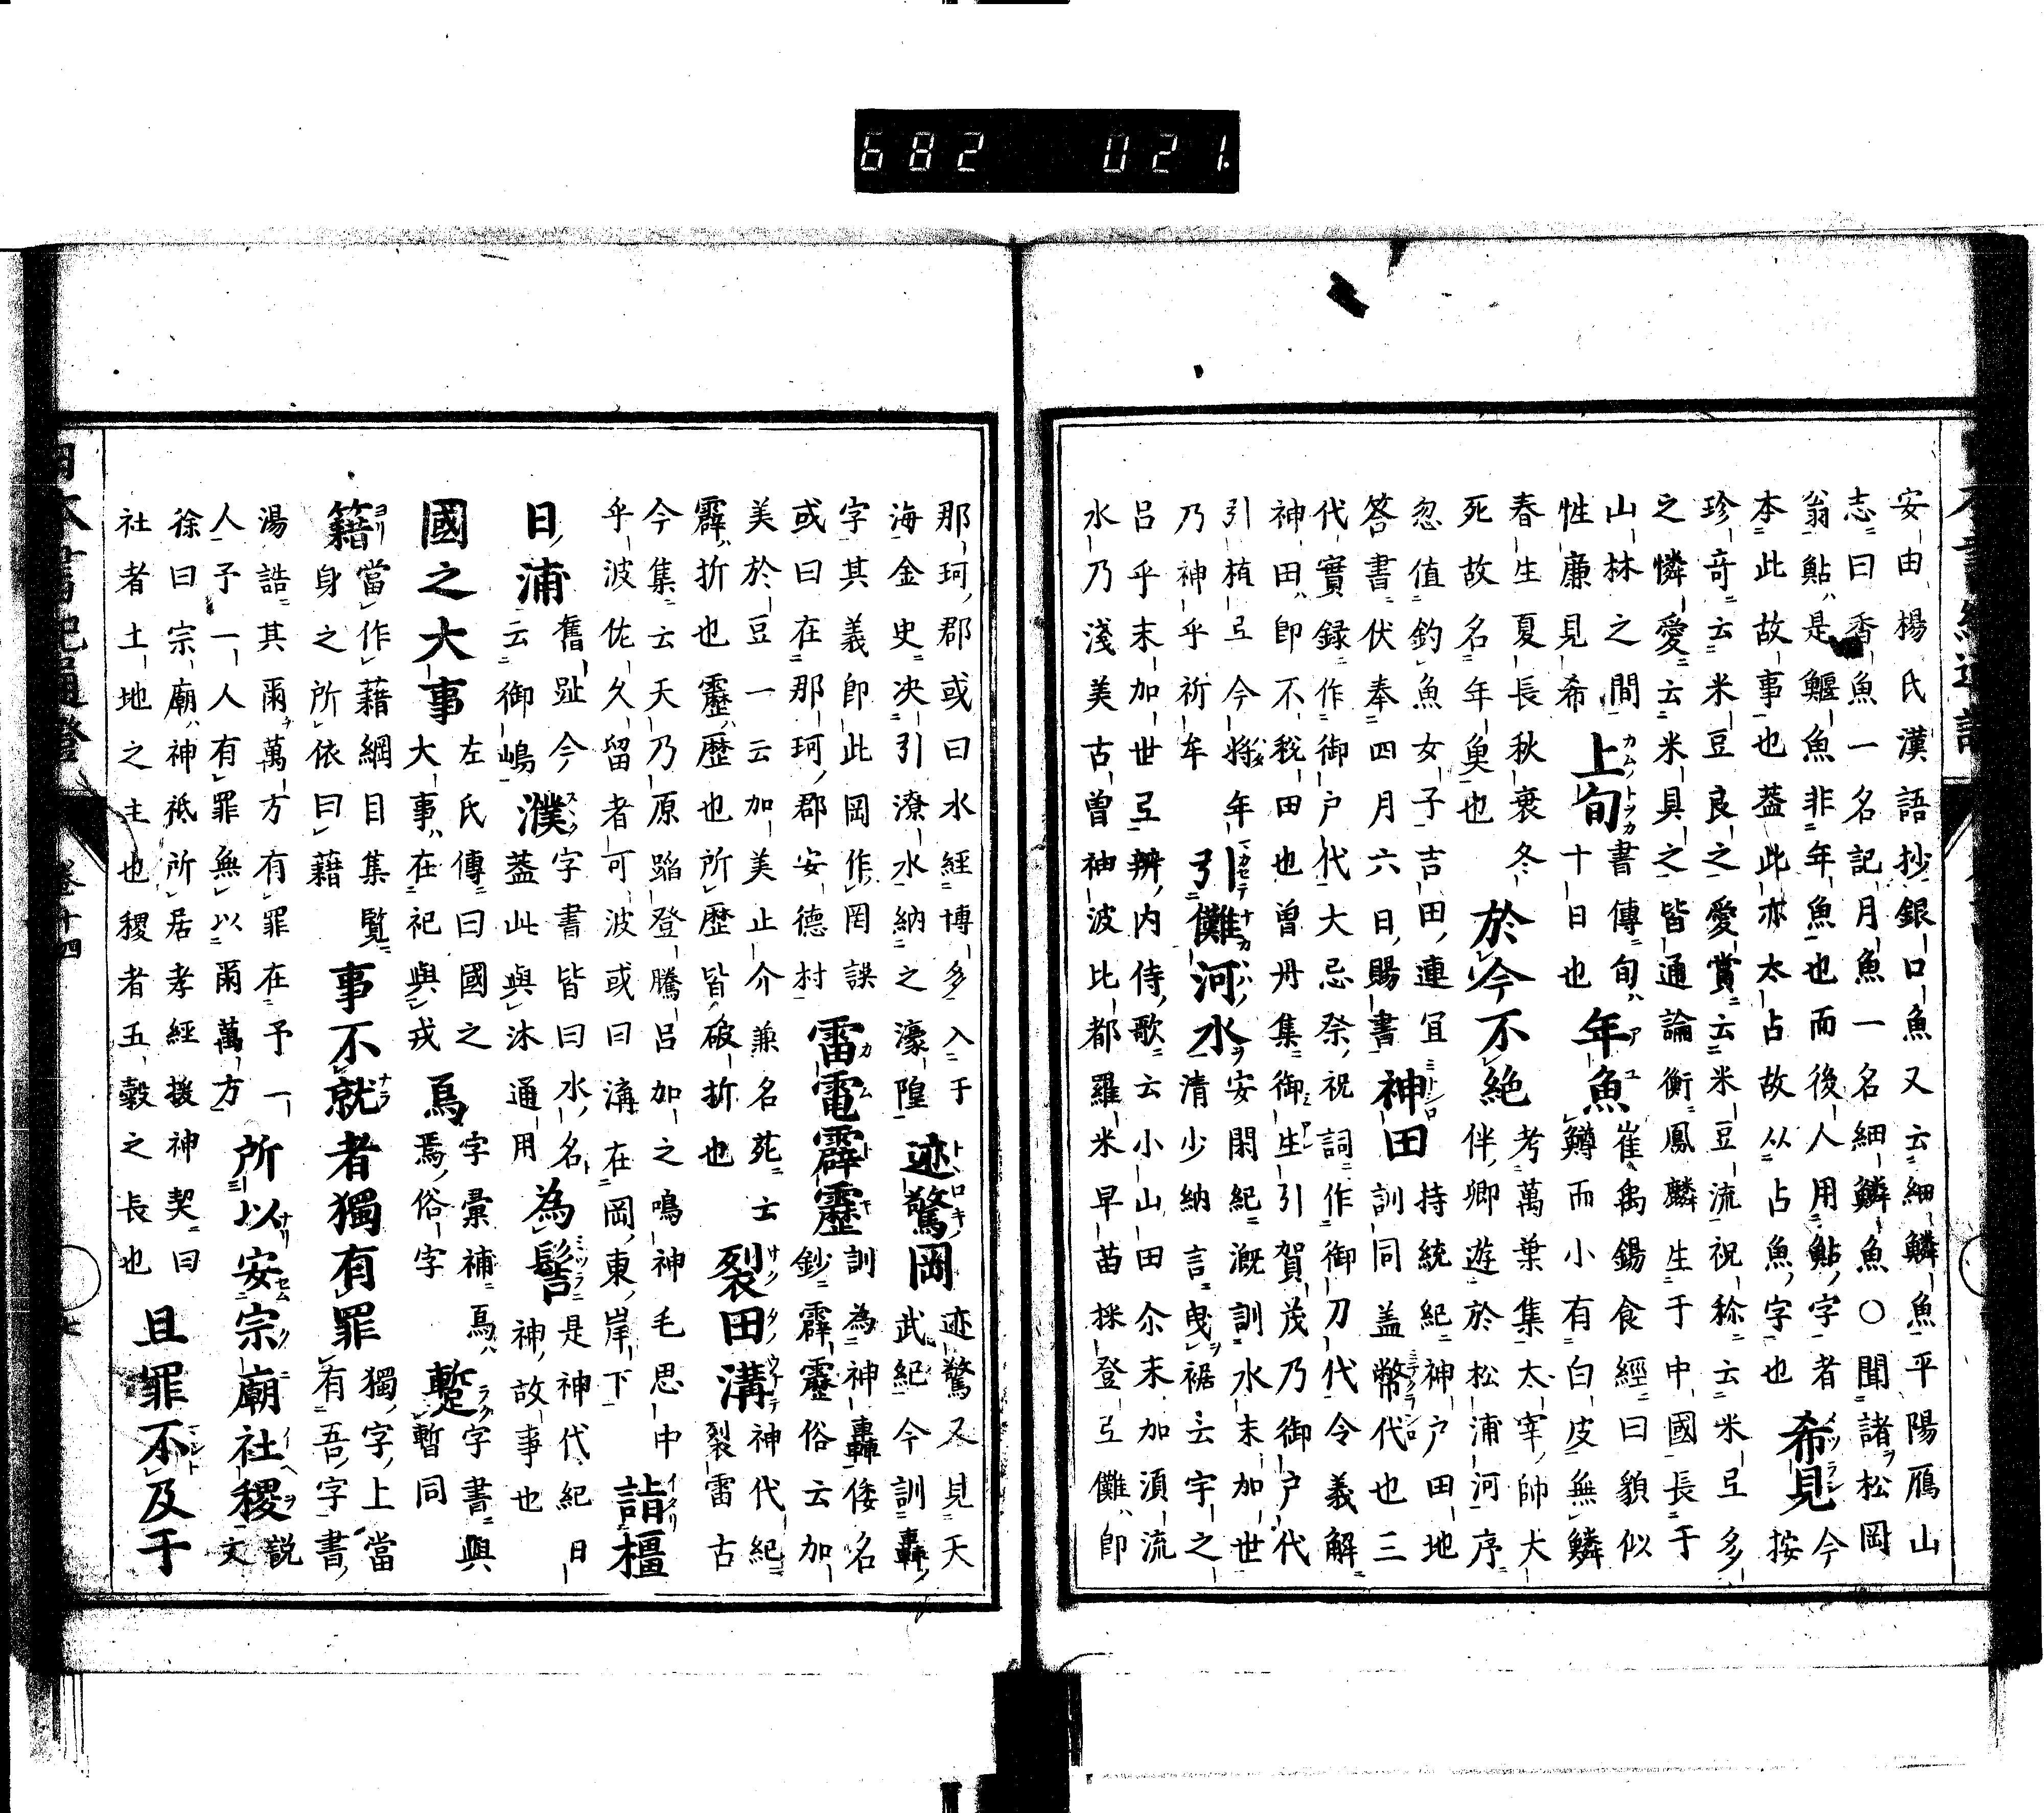 682 021.
安由楊氏漢語抄銀口魚又云細鱗魚平陽鴈山
志曰香魚一名記月魚一名細鱗魚○聞諸松岡
翁鮎是鰋魚非年魚也而後人用鮎字者 希見 今按
本此故事也蓋此亦太占故从占魚字也
珍奇云米豆良之愛賞云米豆流祝称云米弖多
之憐愛云米具之皆通論衡鳳麟生于中國長于
山林之間 上旬 書傳旬十日也 年魚 崔禹錫食經曰貌似鱒而小有白皮無鱗
性廉見希
春生夏長秋衰冬死故名年奐也 於今不絶 考萬葉集太宰帥大伴卿遊於松浦河序
忽値釣魚女子吉田連宜
答書伏奉四月六日賜書 神田 持統紀神戸田地訓同盖幣代也三
代實録作御戸代大忌祭祝詞作御刀代令義解
神田即不税田也曽丹集御生引賀茂乃御戸代
引植弖今将年 引儺河水 安閑紀漑訓水末加世
乃神乎祈年 清少納言曳裾云宇之
呂乎末加世弖辨内侍歌云小山田尒末加須流
水乃淺美古曽袖波比都羅米早苗採登弖儺即
那珂郡或曰水經博多入于 迹驚岡 迹驚又見天武紀今訓轟
海金史決引潦水納之濠隍
字其義即此岡作罔誤 雷電霹靂 訓為神轟倭名鈔霹靂俗云加
或曰在那珂郡安德村
美於豆一云加美止介兼名苑 裂田溝 神代紀裂雷古
霹折也靂歴也所歴皆破折也
今集云天乃原蹈登騰呂加之鳴神毛思中 詣橿
乎波佐久留者可波或曰溝在岡東岸下
日浦 舊趾今云御嶋 濮 字書皆曰水名蓋此與沐通用 為髻 是神代紀日神故事也
國之大事 左氏傳曰國之大事在祀與戎 焉 字彙補焉焉俗字 蹔 字書與暫同
籍 當作藉網目集覧身之所依曰藉 事不就者獨有罪 獨字上當有吾字書
湯誥其爾萬方有罪在予一 所以安宗廟社稷 説文
人予一人有罪無以爾萬方
徐曰宗廟神祗所居孝經援神契曰 且罪不及于
社者土地之主也稷者五穀之長也
卷十四
七